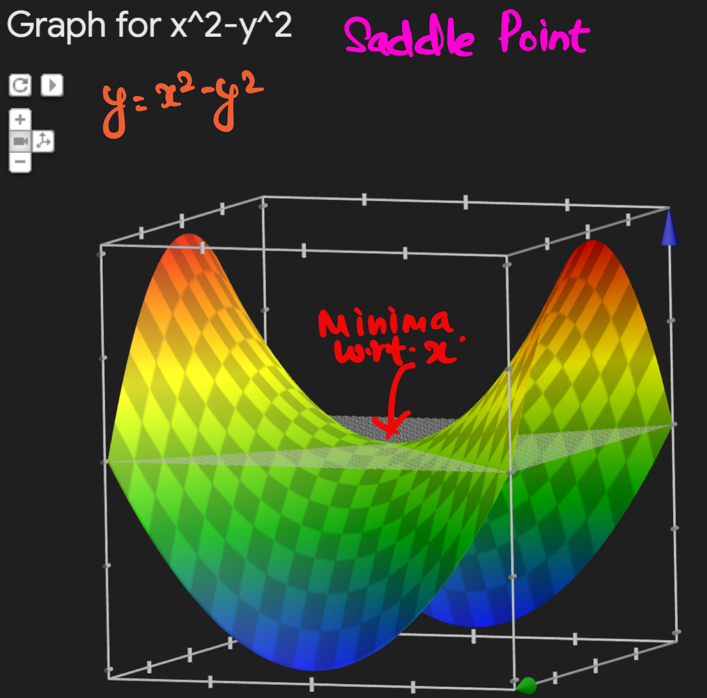 Graph for x^2-y^2
Saddle Point
y = x² - y²
Minima
w.r.t. x